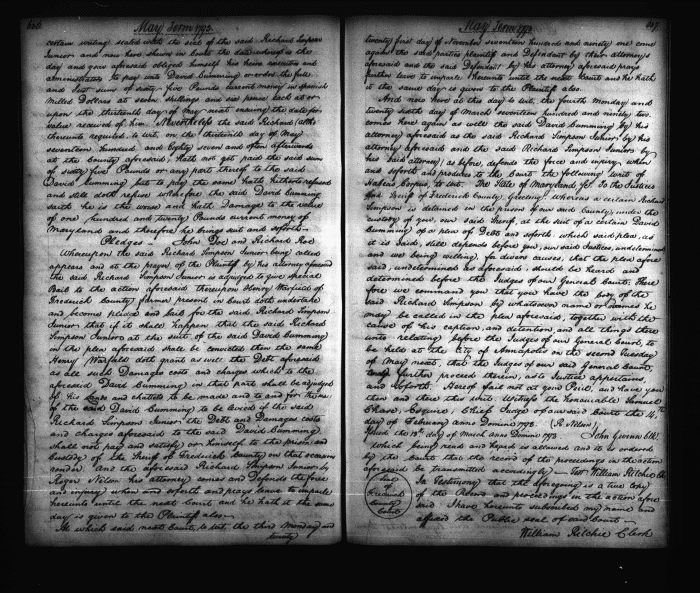 606
May Term 1792
certain writing sealed with the seal of the said Richard Simpson
Junior and now here shewn in Court the date whereof is the
day and year aforesaid obliged himself his heirs executors and
administrators to pay unto David Cumming or order the full
and Just sum of sixty five Pounds current money in spanish
Milled Dollars at seven shillings and six pence each at or
upon the thirteenth day of May next ensuing the date for
value received of him. Nevertheless the said Richard (altho
thereunto required to wit, on the thirteenth day of May
seventeen hundred and Eighty seven and often afterwards
at the County aforesaid) hath not yet paid the said sum
of sixty five Pounds or any part thereof to the said
David Cumming but to pay the same hath hitherto refused
and still doth refuse wherefore the said David Cumming
saith he is the worse and hath Damage to the value
of one hundred and twenty Pounds current money of
Maryland and therefore he brings suit and soforth
Pledges - John Doe and Richard Roe
Whereupon the said Richard Simpson Junior being called
appears and at the prayer of the Plaintiff by his attorney aforesaid
the said Richard Simpson Junior is adjudged to give special
Bail to the action aforesaid thereupon Henry Warfield of
Frederick County farmer present in Court doth undertake
and become pledge and bail for the said Richard Simpson
Junior that if it shall happen that the said Richard
Simpson Junior at the suit of the said David Cumming
in the plea aforesaid shall be convicted then the same
Henry Warfield doth grant as well the Debt aforesaid
as all such Damages costs and charges which to the
aforesaid David Cumming in that part shall be adjudged
of his lands and chattels to be made and to and for the use
of the said David Cumming to be levied if the said
Richard Simpson Junior the Debt and Damages costs
and charges aforesaid to the said David Cumming
shall not pay and satisfy or himself to the prison and
custody of the Sheriff of Frederick County on that occasion
render. and the aforesaid Richard Simpson Junior by
Roger Nelson his attorney comes and Defends the force
and injury when and soforth and prays leave to imparle
hereunto until the next Court and he hath it the same
day is given to the Plaintiff also
At which said next Court, to wit the third Monday and
twenty
May Term 1792
607
twenty first day of November seventeen hundred and ninety one come
again the said parties plaintiff and Defendant by their attorneys
aforesaid and the said Defendent by his attorney aforesaid prays
further leave to imparle thereunto until the next Court and he hath
it the same day is given to the Plaintiff also
And now here at this day to wit, the fourth Monday and
twenty sixth day of March seventeen hundred and ninety two
comes here again as well the said David Cumming by his
attorney aforesaid as the said Richard Simpson Junior by his
attorney aforesaid and the said Richard Simpson Junior by
his said attorney, as before, defends the force and injury, when
and soforth and produces to the Court the following writ of
Habeas Corpus, to wit. The State of Maryland To the Justices
and Sheriff of Frederick County, Greeting. whereas a certain Richard
Simpson is detained in the prison of our said County, under the
custody of you, our said Sheriff, at the suit of a certain David
Cumming of a plea of Debt and soforth, which said plea, as
it is said, still depends before you, our said Justices, undetermined
and we being willing for divers causes, that the plea afore
said, undetermined as aforesaid, should be heard and
determined before the Judges of our General Court; There
fore we command you that you have the body of the
said Richard Simpson by whatsoever name or names he
may be called in the plea aforesaid, together with the
cause of his caption, and detention, and all things there
unto relating before the Judges of our General Court, to
be held at the City of Annapolis on the second Tuesday
of May next, that the Judges of our said General Court,
further proceed therein, as to Justice appertains,
and soforth. Hereof fail not at your Peril, and have you
then and there this writ. Witness the honourable Samuel
Chase, Esquire, Chief Judge of our said Court the 4th
day of February anno Domini 1792. (R Nelson)
Issued the 13th day of March anno Domini 1792. John Gwinn Clk
Which being read and heard is allowed and it is ordered
by the Court that the record of the proceedings in the action
aforesaid be transmitted accordingly - Test William Ritchie Ck
In Testimony that the foregoing is a true Copy
of the Record and proceedings in the action afore
said I have hereunto subscribed my name and
affixed the Public seal of said Court
Seal
of
Frederick
County
Court
William Ritchie Clerk